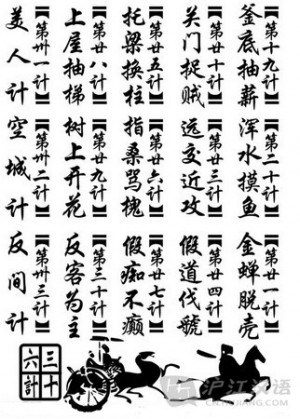 【第十九计】
釜底抽薪
【第二十计】
浑水摸鱼
【第廿一计】
金蝉脱壳
【第廿十计】
关门捉贼
【第廿三计】
远交近攻
【第廿四计】
假道伐號
【第廿五计】
托梁换柱
【第廿六计】
指桑骂槐
【第廿七计】
假痴不癫
【第廿八计】
上屋抽梯
【第廿九计】
树上开花
【第三十计】
反客为主
【第卅一计】
美人计
【第卅二计】
空城计
【第卅三计】
反间计
三十
六計
沪江汉语